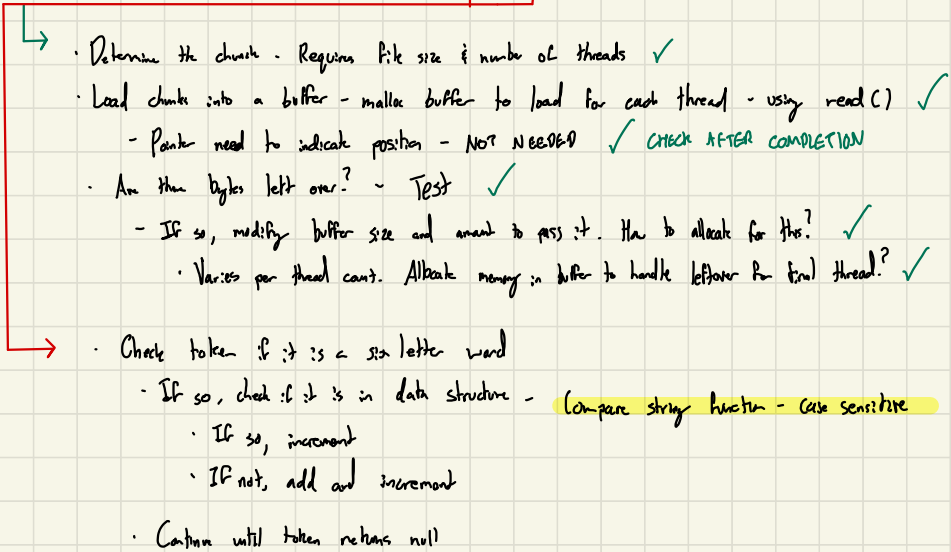 · Determine the chunk - Requires file size & number of threads ✓
· Load chunks into a buffer - malloc buffer to load for each thread - using read() ✓
- Pointer need to indicate position - NOT NEEDED ✓ CHECK AFTER COMPLETION
· Are there bytes left over? - Test ✓
- If so, modify buffer size and amount to pass it. How to allocate for this? ✓
· Varies per thread count. Allocate memory in buffer to handle leftover for final thread? ✓
· Check token if it is a six letter word
· If so, check if it is in data structure - Compare string function - case sensitive
· If so, increment
· If not, add and increment
· Continue until token returns null